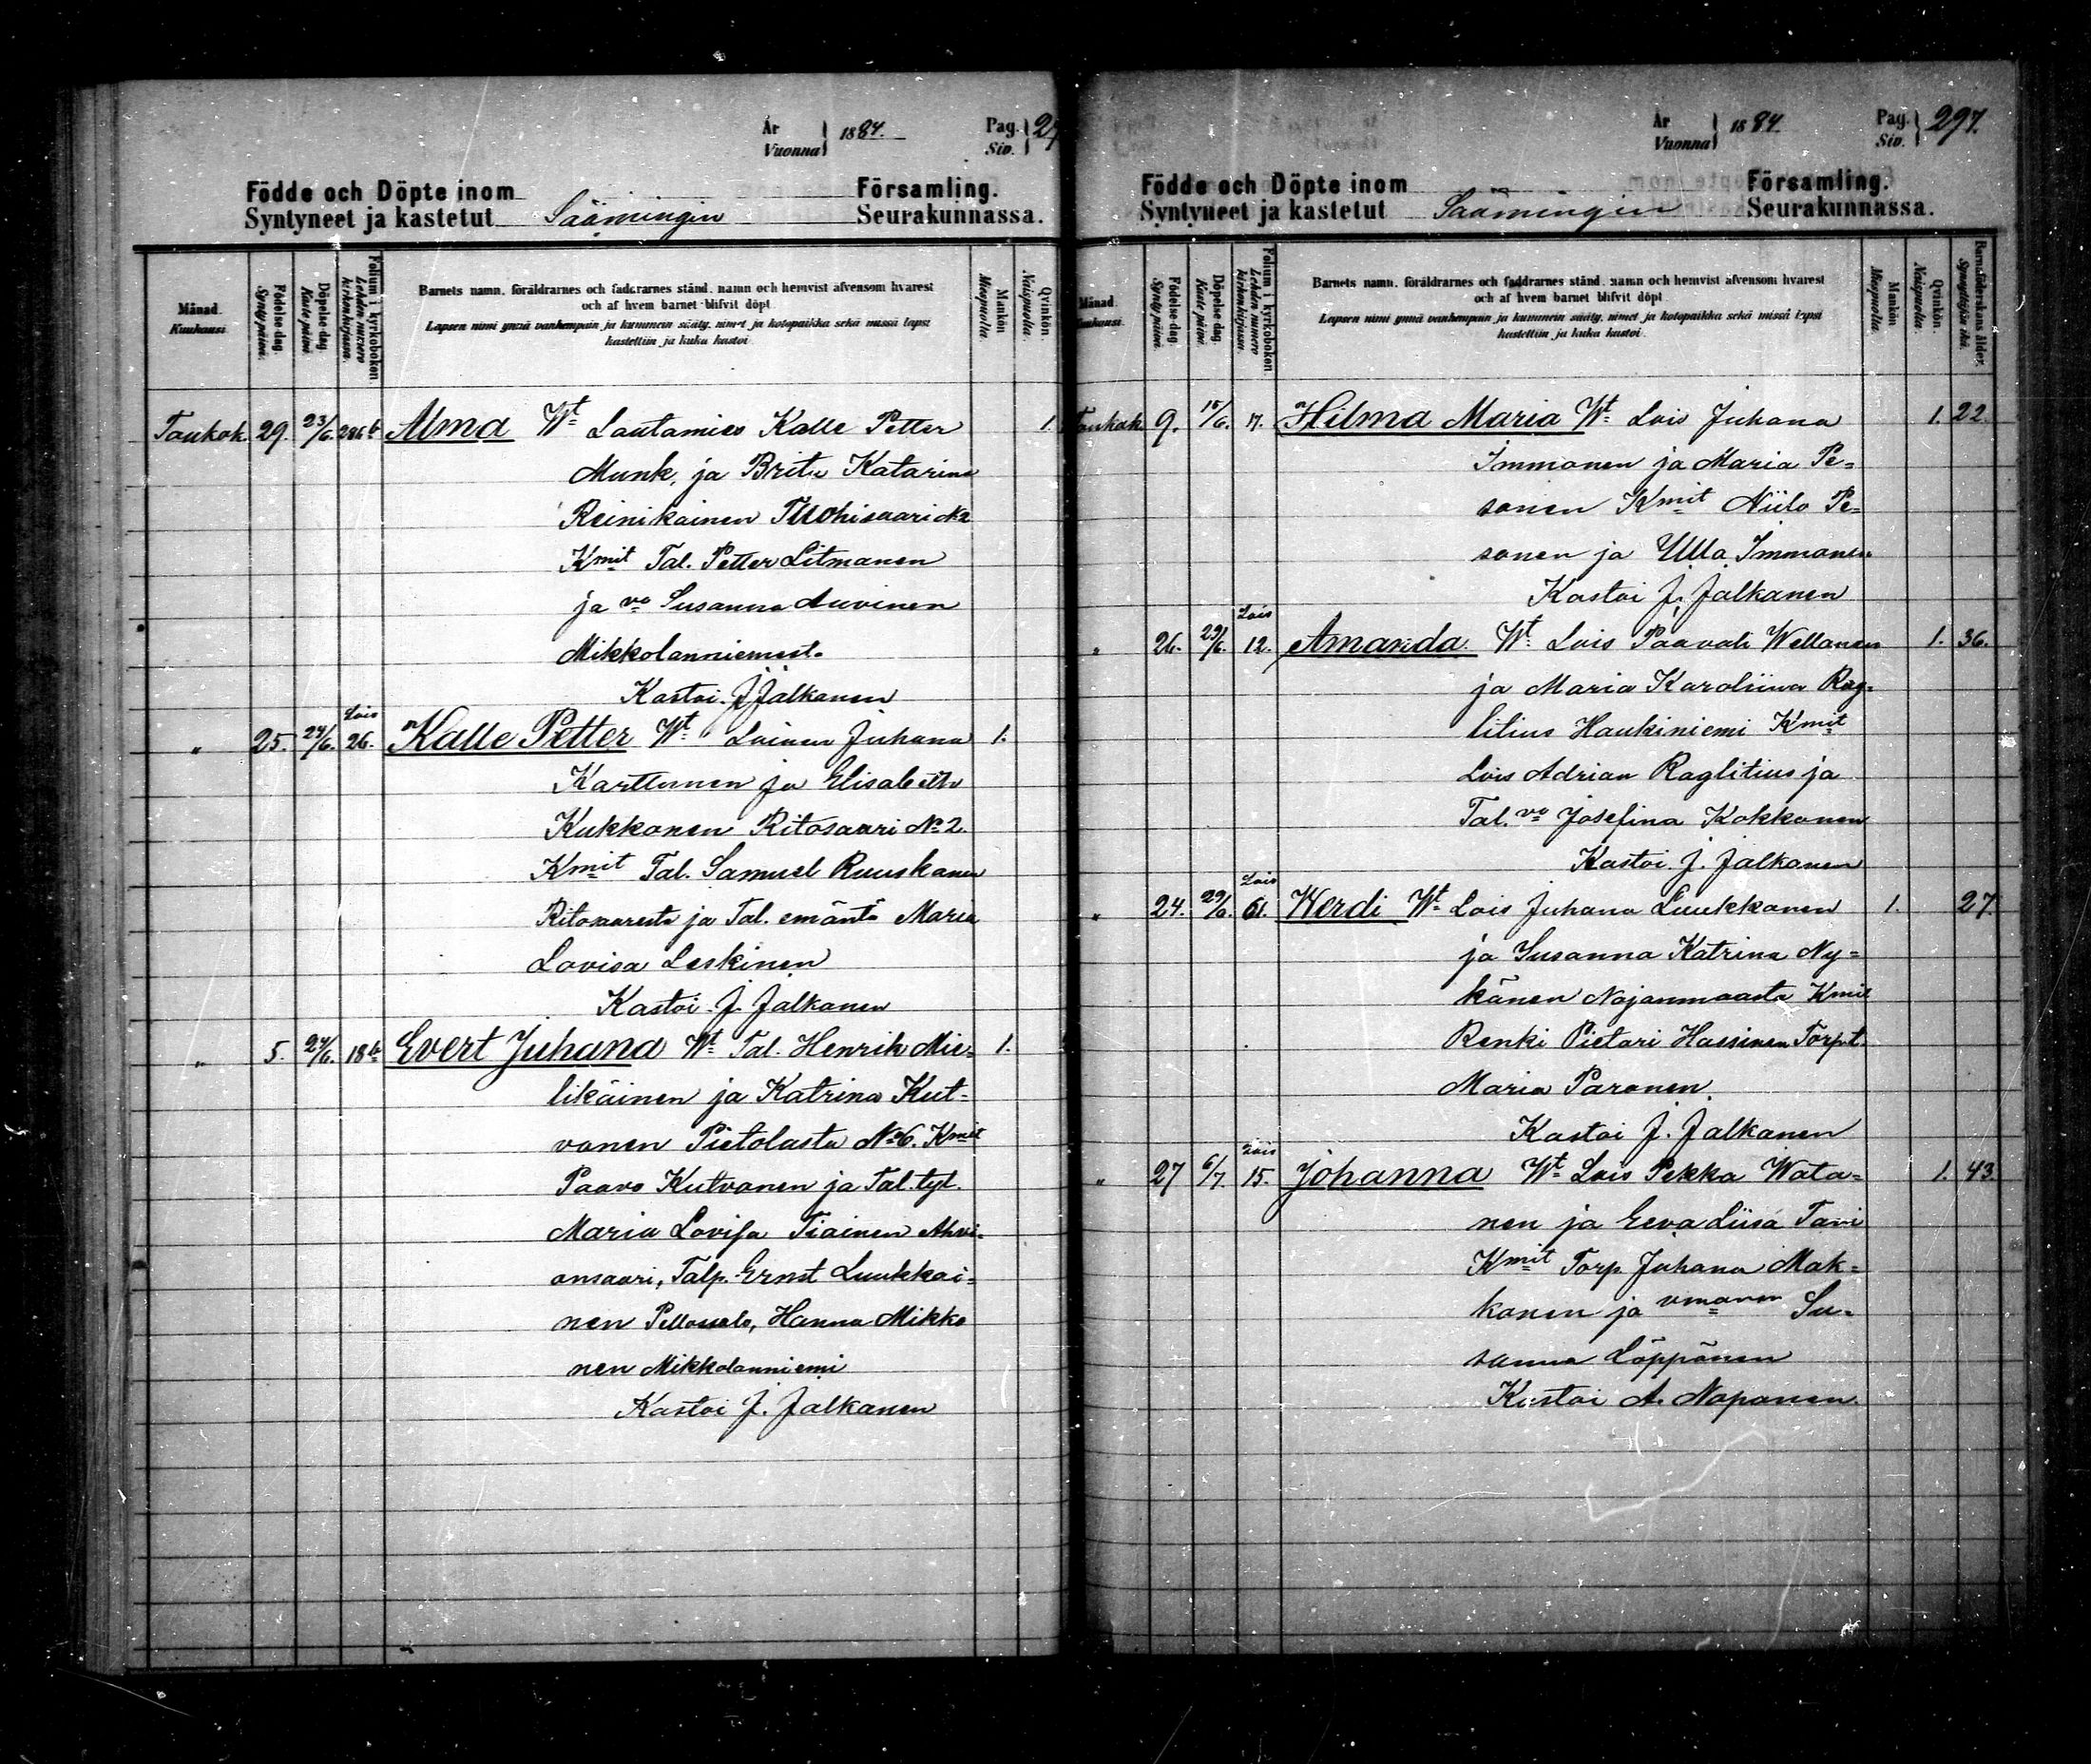 År
Vuonna 1884.
Pag.
Siv. 29
Födde och Döpte inom
Syntyneet ja kastetut Säämingin
Församling.
Seurakunnassa.
Månad.
Kuukausi.
Födelse dag.
Syntypäivä.
Döpelse dag.
Kaste päivä.
Folium i kyrkoboken.
Lehden numero kirkonkirjassa.
Barnets namn, föräldrarnes och faddrarnes stånd, namn och hemvist äfvensom hvarest
och af hvem barnet blifvit döpt.
Lapsen nimi ynnä vanhempain ja kummein sääty, nimet ja kotopaikka sekä missä lapsi
kastettiin ja kuka kastoi.
Mankön
Miespuolia.
Qvinkön.
Naispuolia.
Toukok. 29. 23/6. 286 b Alma Wt Lautamies Kalle Petter 1.
Munk, ja Brita Katarina
Reinikainen Tuohisaari № 2
Kmit Tal. Petter Litmanen
ja vo Susanna Auvinen
Mikkolanniemest.
Kastoi J. Jalkanen
Lois
" 25. 24/6. 26. Kalle Petter Wt Loinen Juhana 1.
Karttunen ja Elisabeth
Kukkonen Ritosaari № 2.
Kmit Tal. Samuel Ruuskanen
Ritosaresta ja Tal. emäntä Maria
Lovisa Leskinen
Kastoi J. Jalkanen
" 5. 24/6. 18 b Evert Juhana Wt Tal. Henrik Mie= 1.
likäinen ja Katrina Kut-
vonen Pietolasta № 6. Kmit
Paavo Kutvonen ja Tal. tyt.
Maria Lovisa Tiainen Ahvi-
onsaari, Talp. Ernst Luukkai=
nen Pellossalo, Hanna Mikko
nen Mikkolanniemi
Kastoi J. Jalkanen
År
Vuonna 1884.
Pag.
Siv. 297.
Födde och Döpte inom
Syntyneet ja kastetut Säämingin
Församling.
Seurakunnassa.
Månad.
Kuukausi.
Födelse dag.
Syntypäivä.
Döpelse dag.
Kaste päivä.
Folium i kyrkoboken.
Lehden numero kirkonkirjassa.
Barnets namn, föräldrarnes och faddrarnes stånd, namn och hemvist äfvensom hvarest
och af hvem barnet blifvit döpt.
Lapsen nimi ynnä vanhempain ja kummein sääty, nimet ja kotopaikka sekä missä lapsi
kastettiin ja kuka kastoi.
Mankön
Miespuolia.
Qvinkön.
Naispuolia.
Barnaföderskans ålder.
Synnyttäjän ikä.
Toukok. 9. 15/6. 17. Hilma Maria Wt Lois Juhana 1. 22.
Immonen ja Maria Pe=
sonen Kmit Niilo Pe=
sonen ja Ulla Immonen
Kastoi J. Jalkanen
Lois
" 26. 29/6. 12. Amanda. Wt Lois Paavali Wellanen 1. 36.
ja Maria Karoliina Rag=
litius Haukiniemi Kmit
Lois Adrian Raglitius ja
Tal. vo Josefina Kokkonen
Kastoi J. Jalkanen
Lois
" 24. 29/6. 61. Werdi Wt Lois Juhana Luukkonen 1. 27.
ja Susanna Katrina Ny=
känen Nojanmaasta Kmit
Renki Pietari Hassinen Torp.t.
Maria Paronen.
Kastoi J. Jalkanen
Lois
" 27 6/7. 15. Johanna Wt Lois Pekka Wata= 1. 43.
nen ja Eeva Liisa Tavi
Kmit Torp. Juhana Mak=
konen ja vmonsa Su=
sanna Löppönen
Kastoi A. Noponen.